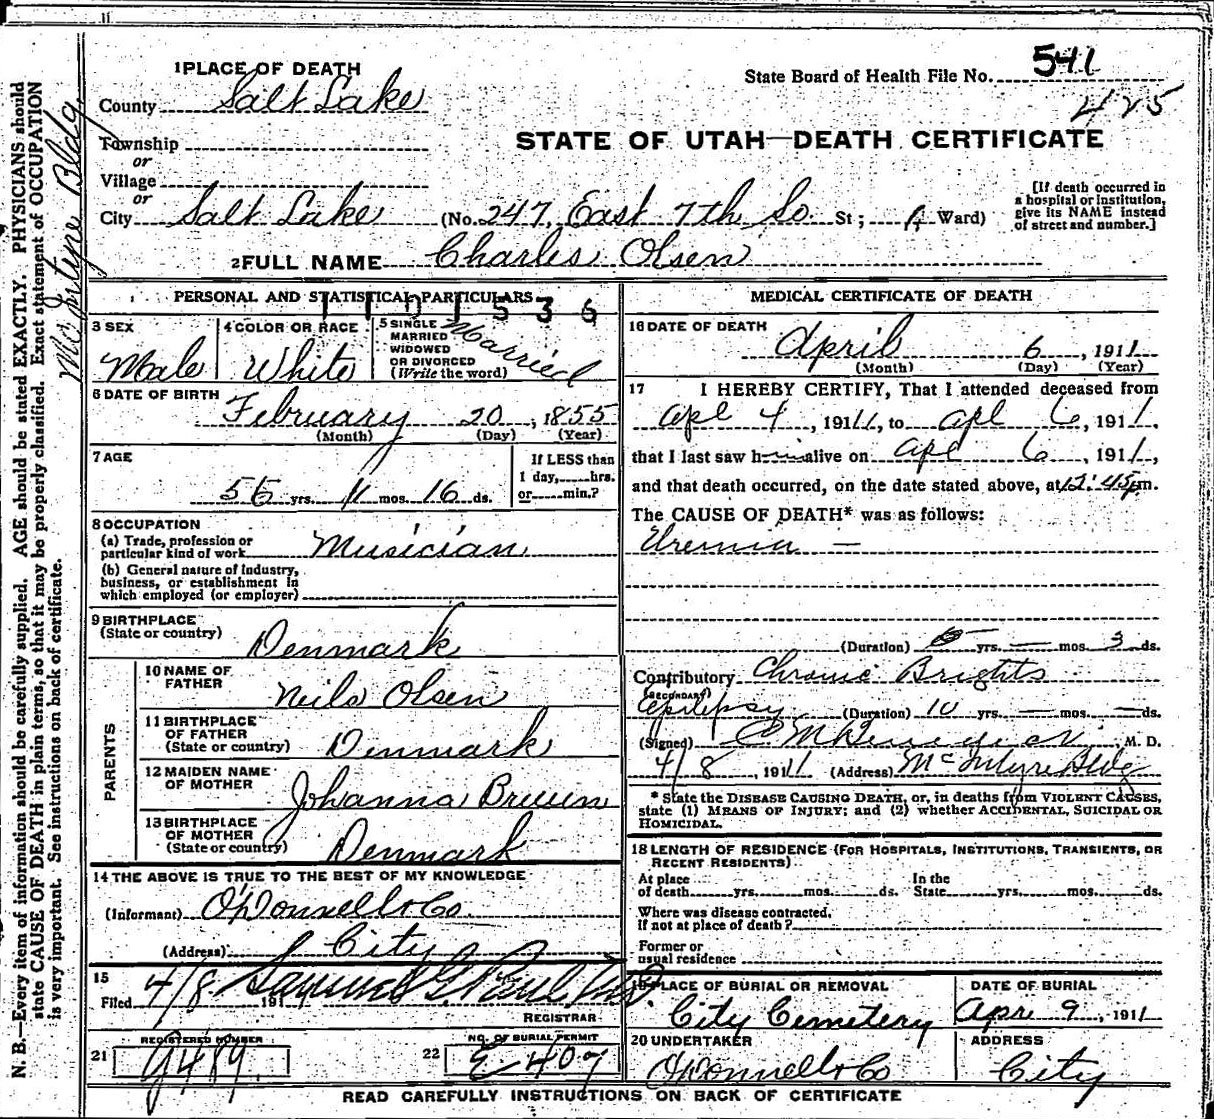 11
1 PLACE OF DEATH
State Board of Health File No. 541
County Salt Lake
425
STATE OF UTAH—DEATH CERTIFICATE
Township
or
Village
or
City Salt Lake (No. 247 East 7th So. St; Ward)
[If death occurred in
a hospital or institution,
give its NAME instead
of street and number.]
2 FULL NAME Charles Olsen
PERSONAL AND STATISTICAL PARTICULARS
1101536
3 SEX
Male
4 COLOR OR RACE
White
5 SINGLE
MARRIED
WIDOWED
OR DIVORCED
(Write the word)
Married
6 DATE OF BIRTH
February 20, 1855
(Month) (Day) (Year)
7 AGE
yrs. 11 mos. 16 ds.
If LESS than
1 day, hrs.
or min.?
8 OCCUPATION
(a) Trade, profession or
particular kind of work Musician
(b) General nature of industry,
business, or establishment in
which employed (or employer)
9 BIRTHPLACE
(State or country)
Denmark
PARENTS
10 NAME OF
FATHER
Neils Olsen
11 BIRTHPLACE
OF FATHER
(State or country)
Denmark
12 MAIDEN NAME
OF MOTHER
Johanna
13 BIRTHPLACE
OF MOTHER
(State or country)
Denmark
14 THE ABOVE IS TRUE TO THE BEST OF MY KNOWLEDGE
(Informant) O'Donnell & Co.
(Address) City
15
Filed 4/8 191 Samuel G. Paul
REGISTRAR
REGISTERED NUMBER
21 G489
NO. OF BURIAL PERMIT
22 E-407
MEDICAL CERTIFICATE OF DEATH
16 DATE OF DEATH
April 6, 1911
(Month) (Day) (Year)
17 I HEREBY CERTIFY, That I attended deceased from
Apl 4, 1911, to Apl 6, 1911,
that I last saw him alive on Apl 6, 1911,
and that death occurred, on the date stated above, at 12:45pm.
The CAUSE OF DEATH* was as follows:
Uremia —
(Duration) yrs. — mos. 3 ds.
Contributory Chronic Brights
(SECONDARY)
Epilepsy (Duration) 10 yrs. — mos. — ds.
(Signed) M. D.
4/8, 1911 (Address) McIntyre Bldg
* State the DISEASE CAUSING DEATH, or, in deaths from VIOLENT CAUSES,
state (1) MEANS OF INJURY; and (2) whether ACCIDENTAL, SUICIDAL OR
HOMICIDAL.
18 LENGTH OF RESIDENCE (FOR HOSPITALS, INSTITUTIONS, TRANSIENTS, OR
RECENT RESIDENTS)
At place
of death yrs. mos. ds.
In the
State yrs. mos. ds.
Where was disease contracted,
if not at place of death?
Former or
usual residence
19 PLACE OF BURIAL OR REMOVAL
City Cemetery
DATE OF BURIAL
Apr 9, 1911
20 UNDERTAKER
O'Donnell & Co
ADDRESS
City
READ CAREFULLY INSTRUCTIONS ON BACK OF CERTIFICATE
N. B.—Every item of information should be carefully supplied. AGE should be stated EXACTLY. PHYSICIANS should
state CAUSE OF DEATH in plain terms, so that it may be properly classified. Exact statement of OCCUPATION
is very important. See instructions on back of certificate.
McIntyre Bldg.